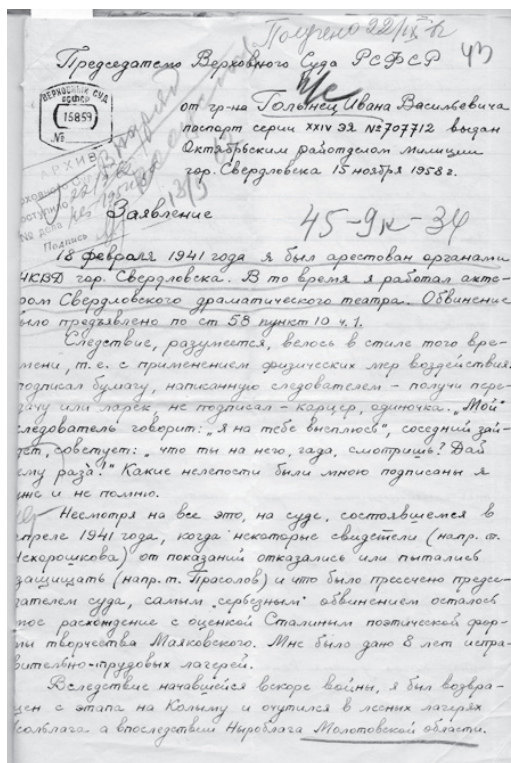 Получено 22/IX
43
Председателю Верховного Суда РСФСР
ВЕРХОВНЫЙ СУД
РСФСР
15.8.59
№
от гр-на Голынец Ивана Васильевича
паспорт серии XXIV ЭЯ № 707712 выдан
Октябрьским райотделом милиции
гор. Свердловска 15 ноября 1958 г.
АРХИВ
№ дела
Подпись
Заявление
45-9к-34
18 февраля 1941 года я был арестован органами
НКВД гор. Свердловска. В то время я работал акте-
ром Свердловского драматического театра. Обвинение
было предъявлено по ст 58 пункт 10 ч.1.
Следствие, разумеется, велось в стиле того вре-
мени, т.е. с применением физических мер воздействия:
подписал бумагу, написанную следователем - получи пере-
дачу или ларек, не подписал - карцер, одиночка. „Мой"
следователь говорит: „я на тебе высплюсь", соседний зай-
дет, советует: „что ты на него, гада, смотришь? Дай
ему раза!" Какие нелепости были мною подписаны я
уже и не помню.
Несмотря на все это, на суде, состоявшемся в
апреле 1941 года, когда некоторые свидетели (напр. т.
Нехорошкова) от показаний отказались или пытались
защищать (напр. т. Прасолов) и что было пресечено предсе-
дателем суда, самым „серьезным" обвинением осталось
мое расхождение с оценкой Сталиным поэтической фор-
мы творчества Маяковского. Мне было дано 8 лет испра-
вительно-трудовых лагерей.
Вследствие начавшейся вскоре войны, я был возвра-
щен с этапа на Колыму и очутился в лесных лагерях
Усольлага а впоследствии Ныроблага Молотовской области.